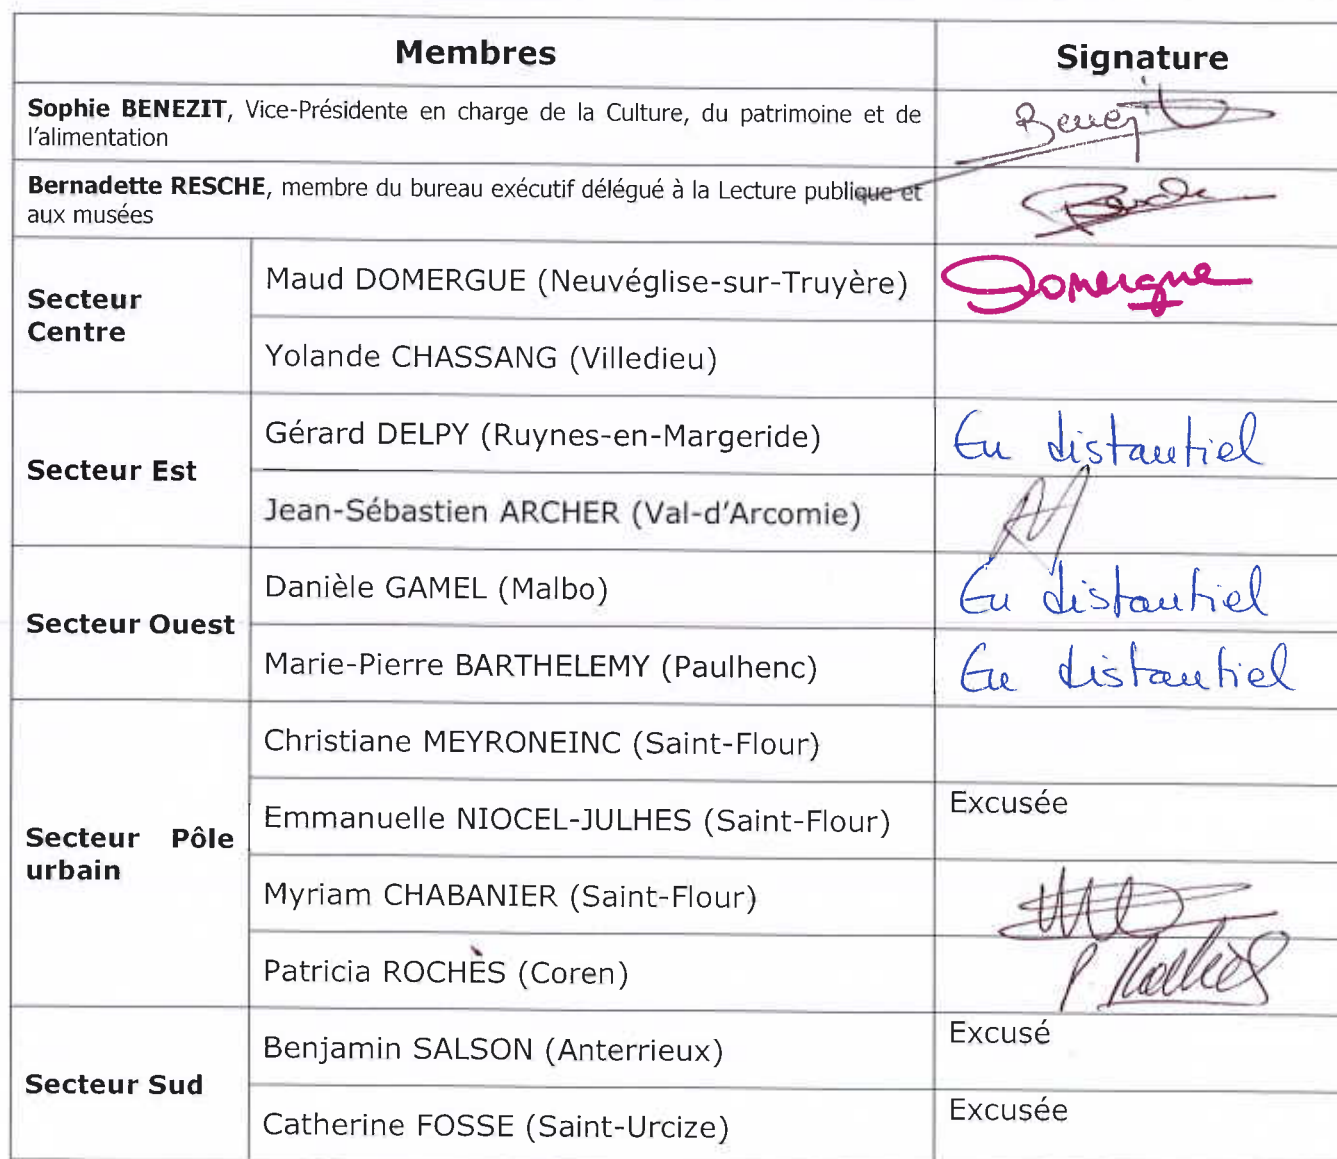 Membres Signature
Sophie BENEZIT, Vice-Présidente en charge de la Culture, du patrimoine et de
l'alimentation
Benezit
Bernadette RESCHE, membre du bureau exécutif délégué à la Lecture publique et
aux musées
Resche
Secteur
Centre
Maud DOMERGUE (Neuvéglise-sur-Truyère) Domergue
Yolande CHASSANG (Villedieu)
Secteur Est
Gérard DELPY (Ruynes-en-Margeride) En distantiel
Jean-Sébastien ARCHER (Val-d'Arcomie)
Secteur Ouest
Danièle GAMEL (Malbo) En distantiel
Marie-Pierre BARTHELEMY (Paulhenc) En distantiel
Secteur Pôle
urbain
Christiane MEYRONEINC (Saint-Flour)
Emmanuelle NIOCEL-JULHES (Saint-Flour) Excusée
Myriam CHABANIER (Saint-Flour)
Patricia ROCHÈS (Coren) P Rochès
Secteur Sud
Benjamin SALSON (Anterrieux) Excusé
Catherine FOSSE (Saint-Urcize) Excusée